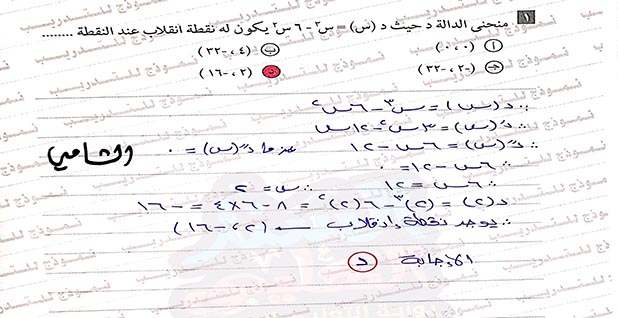 ١ منحنى الدالة د حيث د (س) = س³ - ٦ س² يكون له نقطة انقلاب عند النقطة ........
أ (٠ ، ٠) ب (٤ ، -٣٢)
جـ (-٢ ، -٣٢) د (٢ ، -١٦)
∵ د(س) = س³ - ٦س²
∴ د́(س) = ٣س² - ١٢س
∴ د́́(س) = ٦س - ١٢ عندما د́́(س) = ٠ الشامي
∴ ٦س - ١٢ = ٠
∴ ٦س = ١٢ ∴ س = ٢
د(٢) = (٢)³ - ٦(٢)² = ٨ - ٦×٤ = -١٦
∴ يوجد نقطة إنقلاب ← (٢ ، -١٦)
الإجابة د
نموذج للتدريب